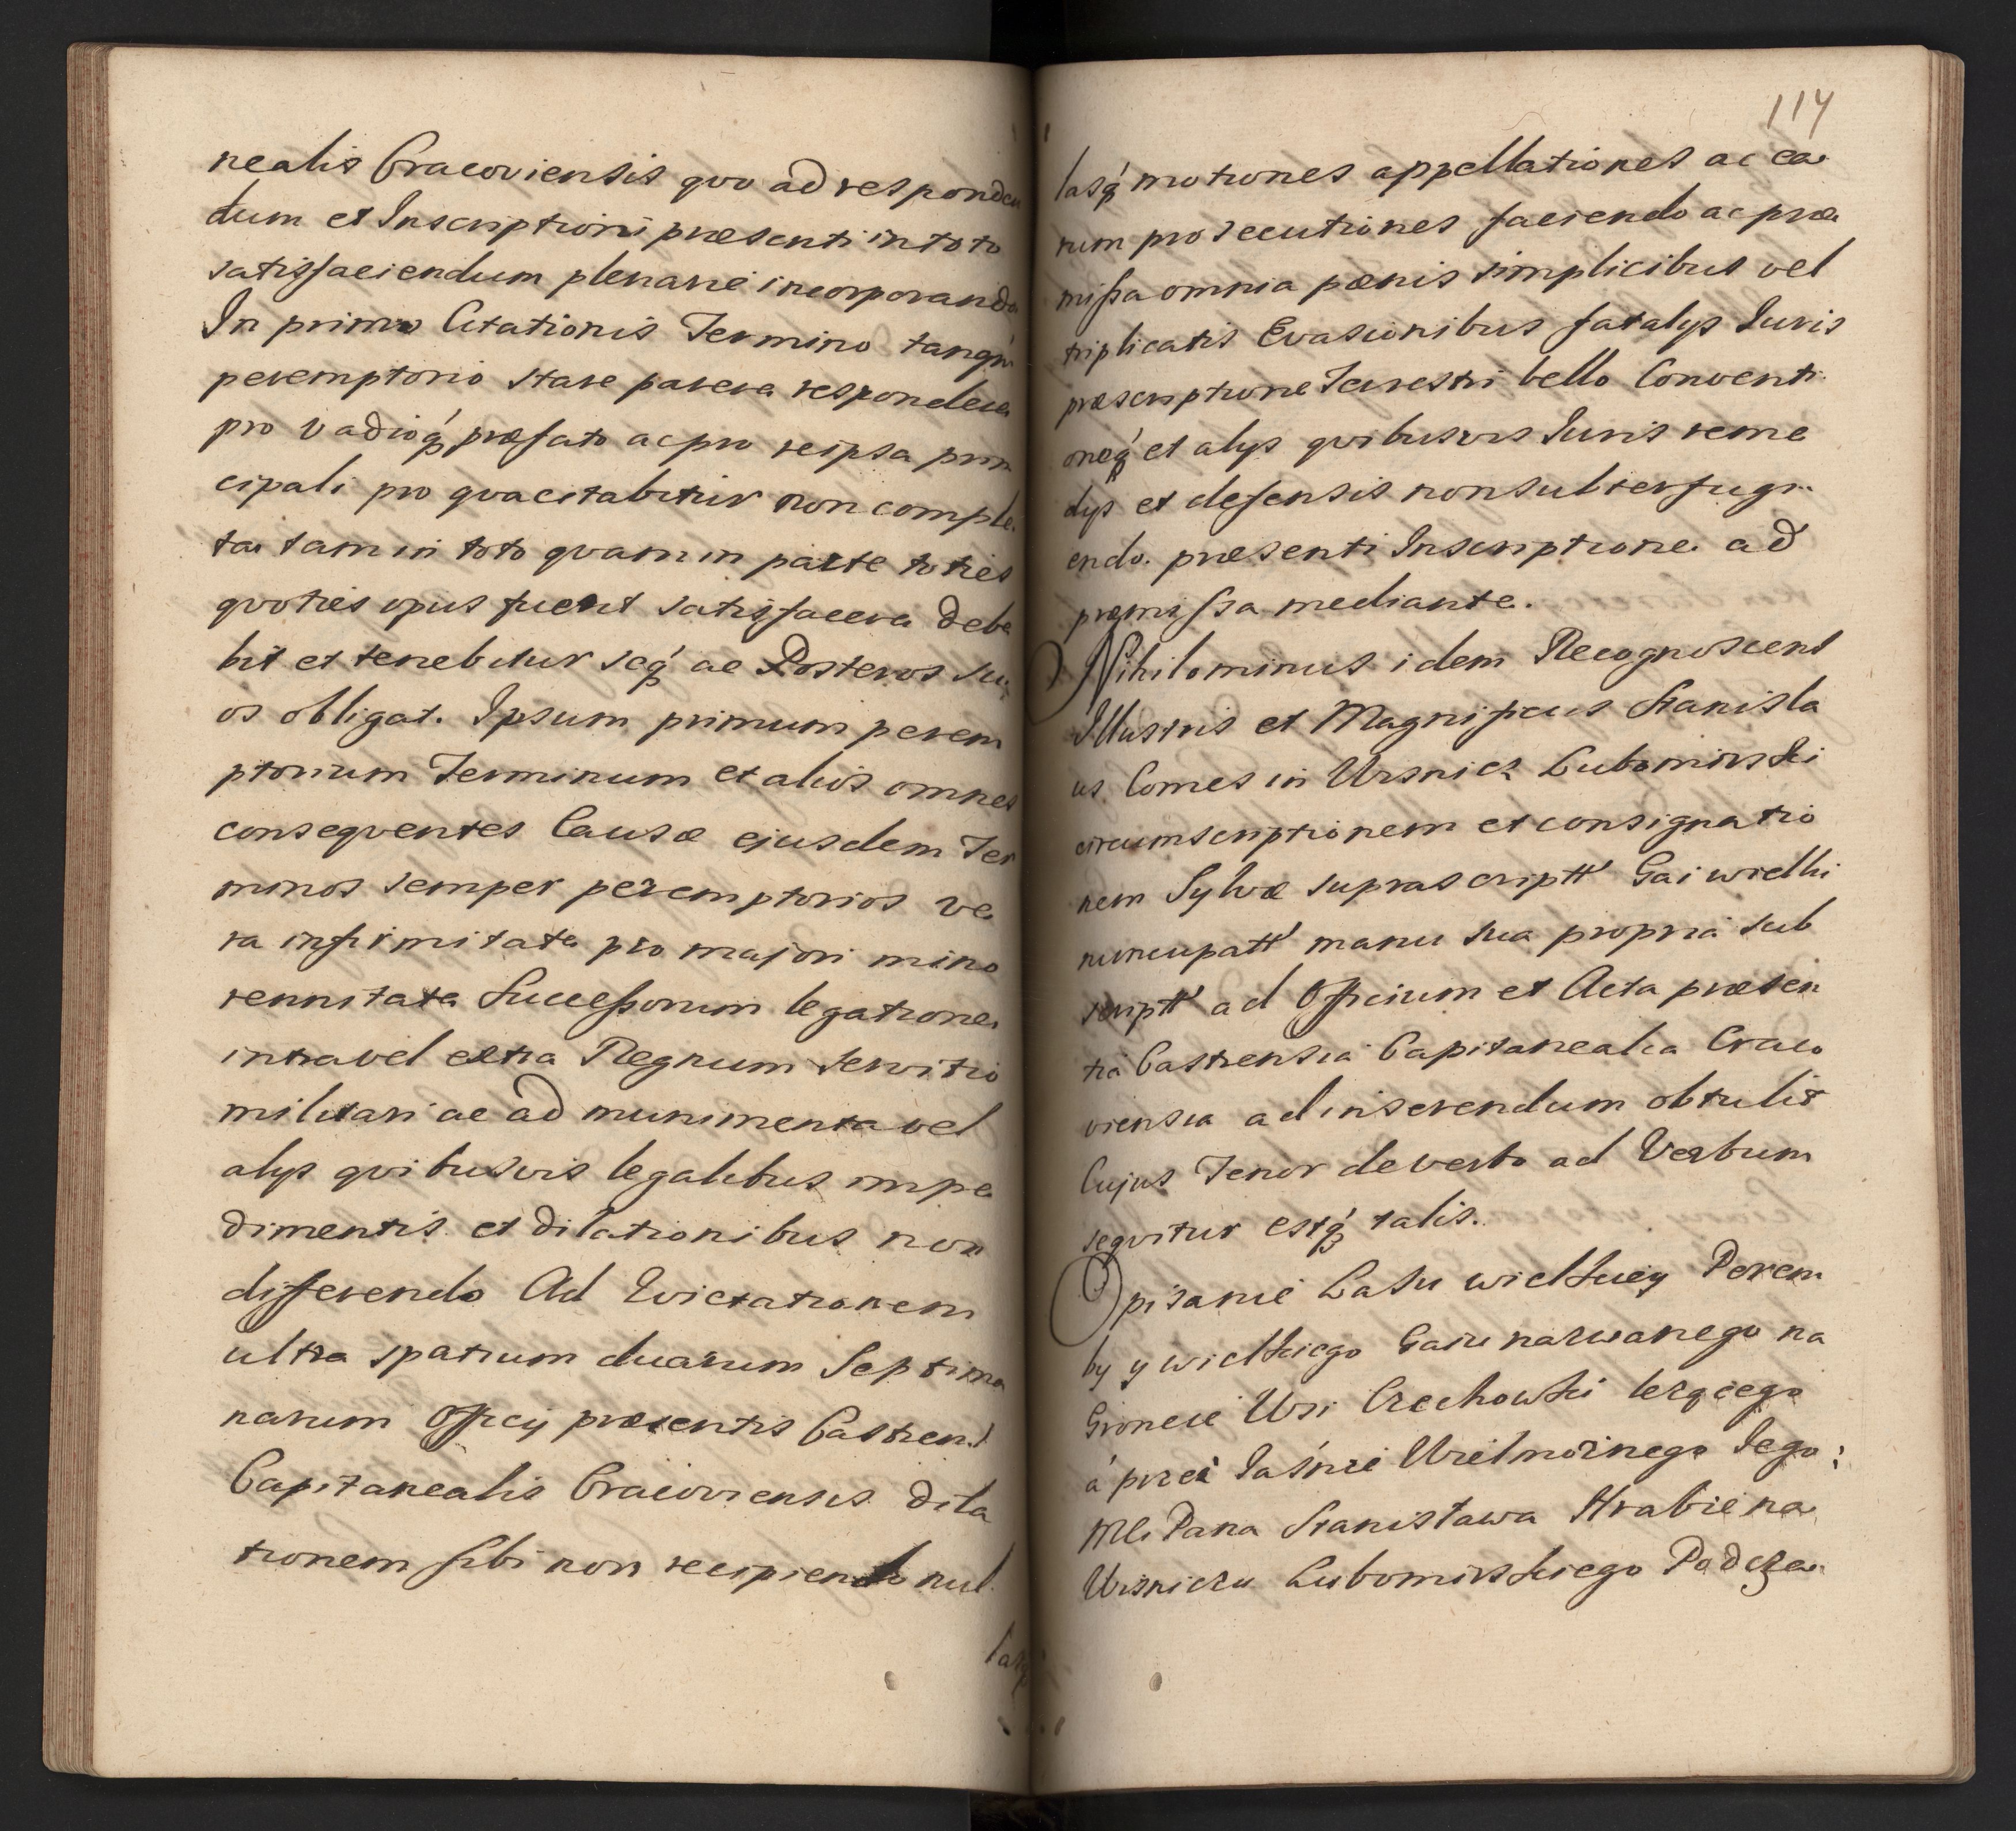 nealis Cracoviensis qvo ad responden
dum et Inscriptioni præsenti in toto
satisfaciendum plenarie incorporando
In primo Citationis Termino tanqm
peremptorio stare parere respondere
pro vadioq præfato ac pro reipsa prin
cipali pro qva citabitur non comple
ta tam in toto qvam in parte toties
qvoties opus fuerit satisfacere debe
bit et tenebitur seq ac Posteros su
os obligat. Ipsum primum perem
ptorium Terminum et alios omnes
conseqventes Causæ ejusdem Ter
minos semper peremptorios ve
ra infirmitate pro majori mino
rennitate Successorum legatione
intra vel extra Regnum servitio
militari ac ad munimenta vel
alys qvibusvis legalibus impe
dimentis et dilationibus non
differendo Ad Evictationem
ultra spatium duarum Septima
narum Officij præsentis Castren:
Capitanealis Cracoviensis dila
tionem sibi non recipiendo nul
lasq
114
lasq motiones appellationes ac ea
rum prosecutiones faciendo ac præ
missa omnia pænis simplicibus vel
triplicatis Evasionibus fatalys Iuris
præscriptione Terrestri bello Conventi
oneq et alys qvibusvis Iuris reme
dys et defensis non subterfugi
endo præsenti Inscriptione ad
præmissa mediante.
Nihilominus idem Recognoscens
Illustris et Magnificus Stanisla
us Comes in Wisnicz Lubomirski
circumscriptionem et consignatio
nem Sylvæ suprascriptt Gai wielki
nuncupatt manu sua propria sub
scriptt ad Officium et Acta præsen
tia Castrensia Capitanealia Craco
viensia ad inserendum obtulit
Cujus Tenor de verbo ad Verbum
seqvitur estq talis.
Opisanie Lasu wielkiey Porem
by y wielkiego Gaiu nazwanego na
Groncie Wsi Czechowki lezącego
á przez Jaśnie Wielmoznego Jego:
Mci Pana Stanisława Hrabie na
Wisniczu Lubomirskiego Podcza